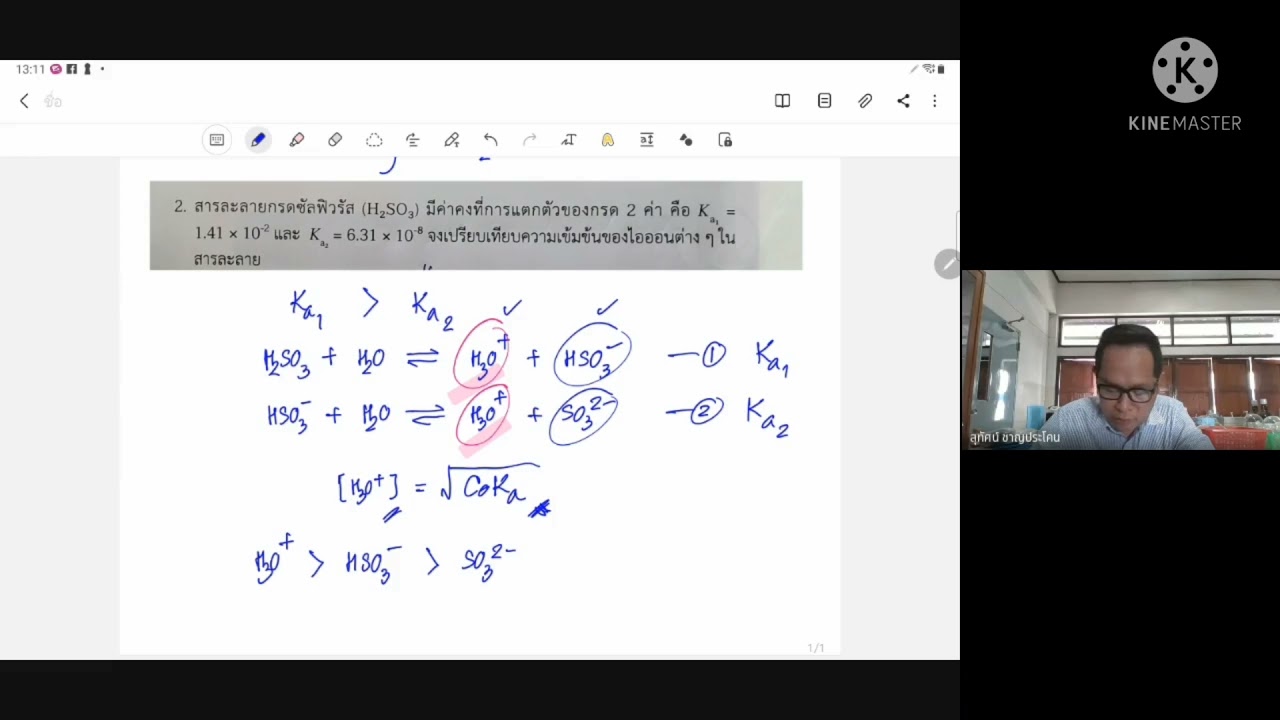 13:11
ชื่อ
KINEMASTER
2. สารละลายกรดซัลฟิวรัส (H₂SO₃) มีค่าคงที่การแตกตัวของกรด 2 ค่า คือ Kₐ₁ =
1.41 × 10⁻² และ Kₐ₂ = 6.31 × 10⁻⁸ จงเปรียบเทียบความเข้มข้นของไอออนต่าง ๆ ใน
สารละลาย
Kₐ₁ > Kₐ₂
H₂SO₃ + H₂O ⇌ H₃O⁺ + HSO₃⁻ — ① Kₐ₁
HSO₃⁻ + H₂O ⇌ H₃O⁺ + SO₃²⁻ — ② Kₐ₂
[H₃O⁺] = √CoKₐ
H₃O⁺ > HSO₃⁻ > SO₃²⁻
1/1
สุทัศน์ ชาญประโคน